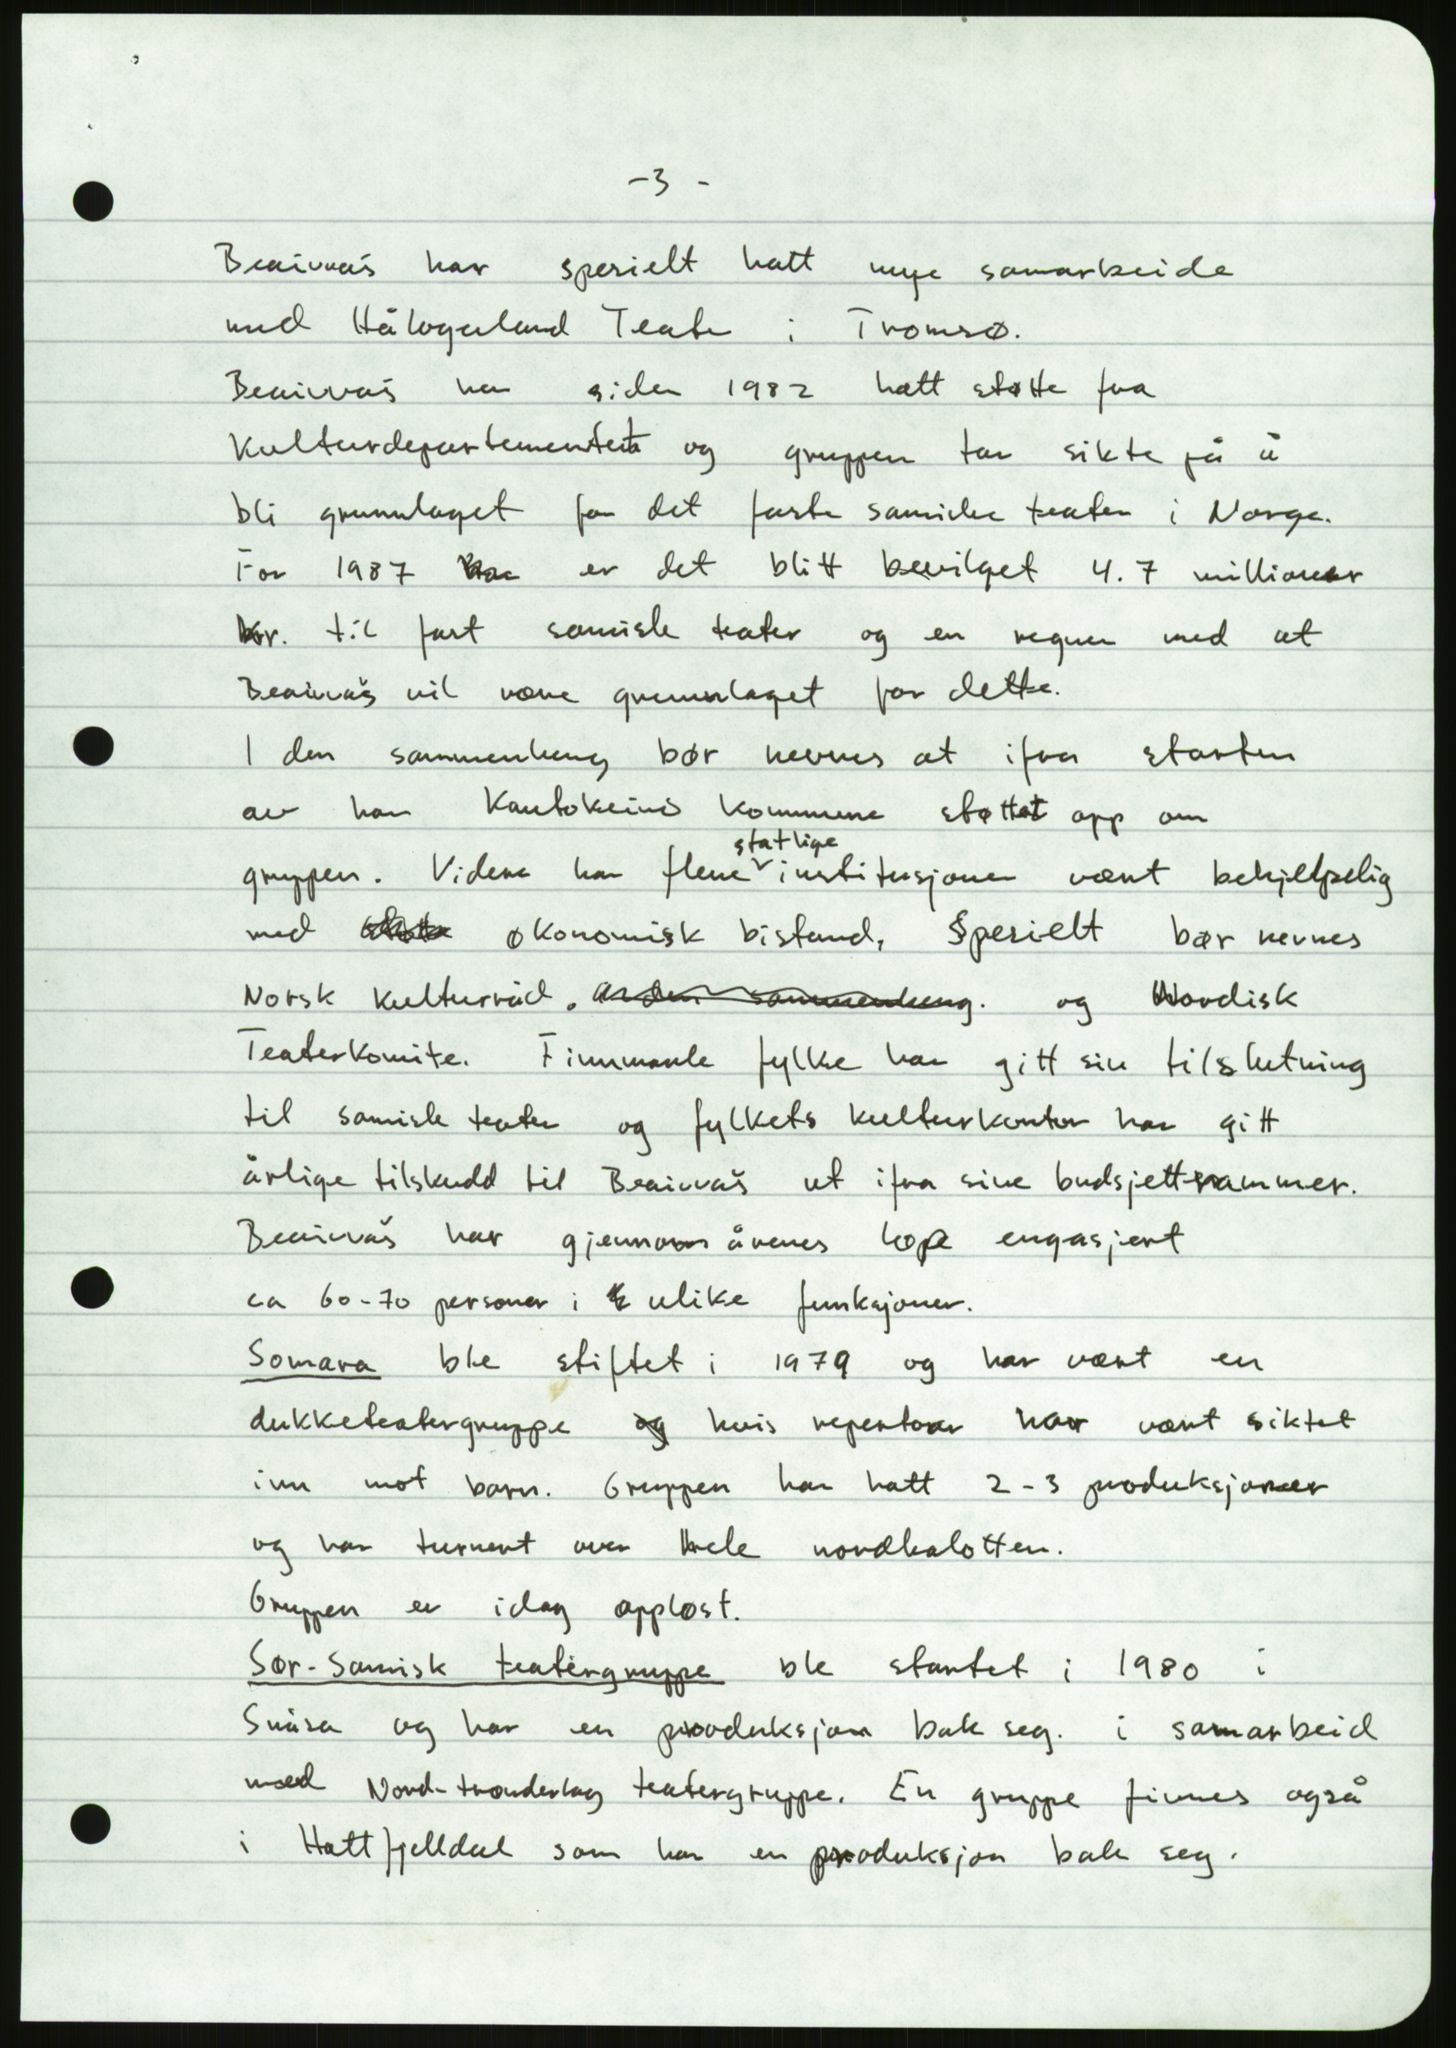 -3-
Beaivváš har spesielt hatt mye samarbeide
med Hålogaland Teater i Tromsø.
Beaivváš har siden 1982 hatt støtte fra
Kulturdepartementet og gruppen tar sikte på å
bli grunnlaget for det faste samiske teater i Norge.
For 1987 er det blitt bevilget 4.7 millioner
kr. til fast samisk teater og en regner med at
Beaivváš vil være grunnlaget for dette.
I den sammenheng bør nevnes at ifra starten
av har Kautokeino kommune støttet opp om
gruppen. Videre har flere statlige institusjoner vært behjelpelig
med økonomisk bistand, Spesielt bør nevnes
Norsk kulturråd. og Nordisk
Teaterkomite. Finnmark fylke har gitt sin tilslutning
til samisk teater og fylkets kulturkontor har gitt
årlige tilskudd til Beaivváš ut ifra sine budsjettrammer.
Beaivváš har gjennom årenes løp engasjert
ca 60-70 personer i ulike funksjoner.
Somara ble stiftet i 1979 og har vært en
dukketeatergruppe hvis repertoar har vært siktet
inn mot barn. Gruppen har hatt 2-3 produksjoner
og har turnert over hele nordkalotten.
Gruppen er idag oppløst.
Sør-Samisk teatergruppe ble startet i 1980 i
Snåsa og har en produksjon bak seg. i samarbeid
med Nord-trønderlag teatergruppe. En gruppe finnes også
i Hattfjelldal som har en produksjon bak seg.